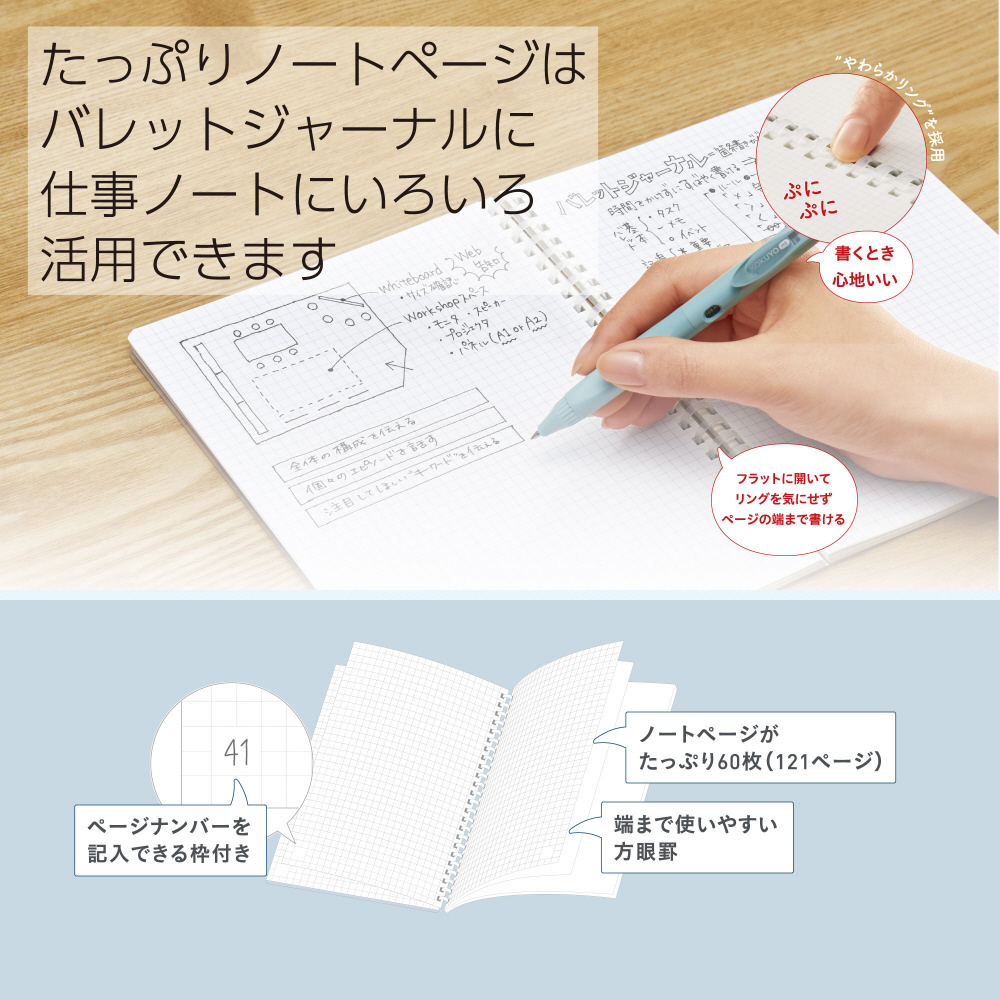 たっぷりノートページは
バレットジャーナルに
仕事ノートにいろいろ
活用できます
"やわらかリング"を採用
ぷに
ぷに
書くとき
心地いい
バレットジャーナル=箇条書き
時間をかけずにすばやく書ける
・タスク
・メモ
・イベント
Whiteboard
Web
・サイズ確認
Workshopスペース
・モニタ ・スピーカー
・プロジェクタ
・パネル(A1 or A2)
全体の構成を伝える
個々のエピソードを話す
注目してほしい"キーワード"を伝える
フラットに開いて
リングを気にせず
ページの端まで書ける
41
ページナンバーを
記入できる枠付き
ノートページが
たっぷり60枚(121ページ)
端まで使いやすい
方眼罫